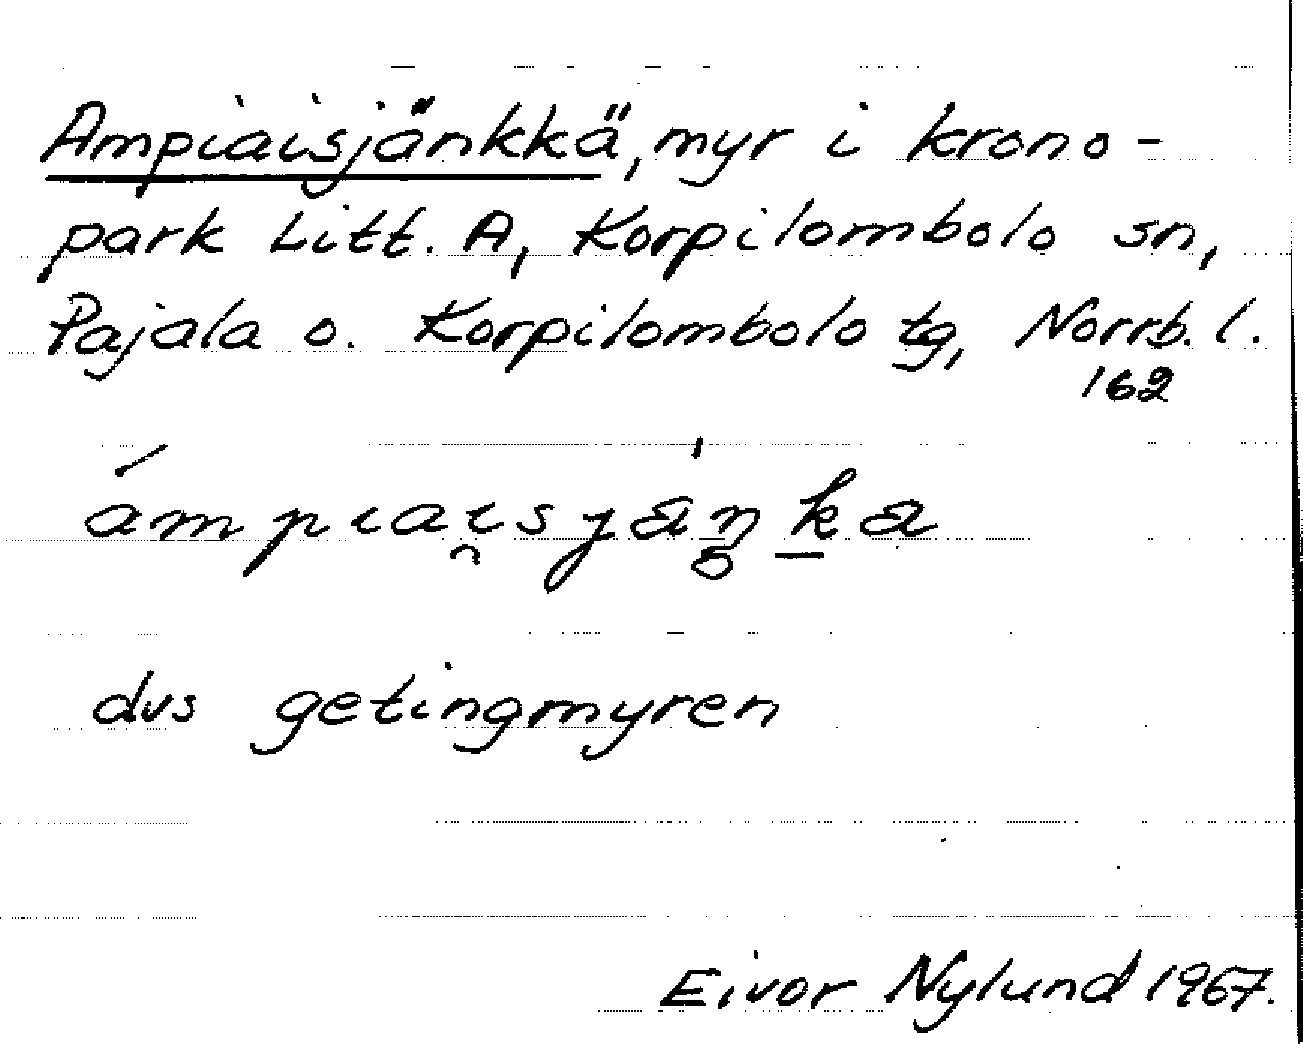 Ampiaisjänkkä, myr i krono-
park Litt. A, Korpilombolo sn,
Pajala o. Korpilombolo tg, Norrb. l.
162
dvs getingmyren
Eivor Nylund 1967.